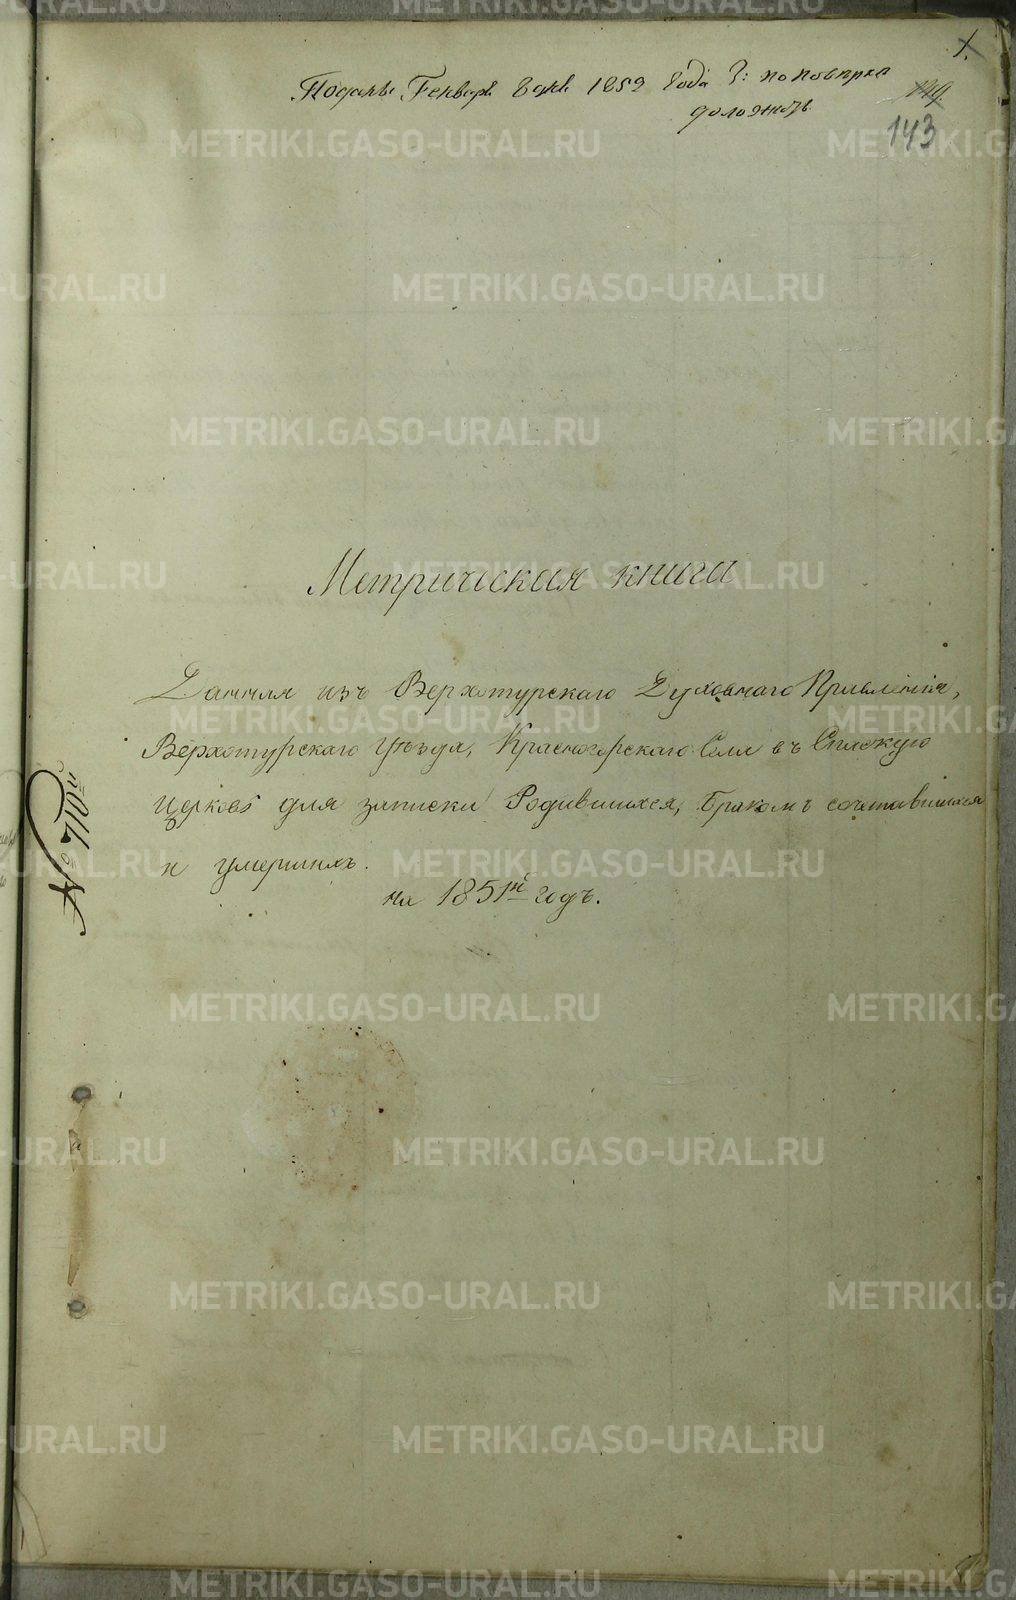 1.
Поданы Генваря дня 1852 года По поверке
149.
доложить
143
Метрическая книга
Данная изъ Верхотурскаго Духовнаго Правленія,
Верхотурскаго уѣзда, Красногорскаго Села въ Спаскую
Церковь для записки Родившихся, Бракомъ сочетавшихся
и умершихъ.
на 1851й годъ.
№ 710й
METRIKI.GASO-URAL.RU